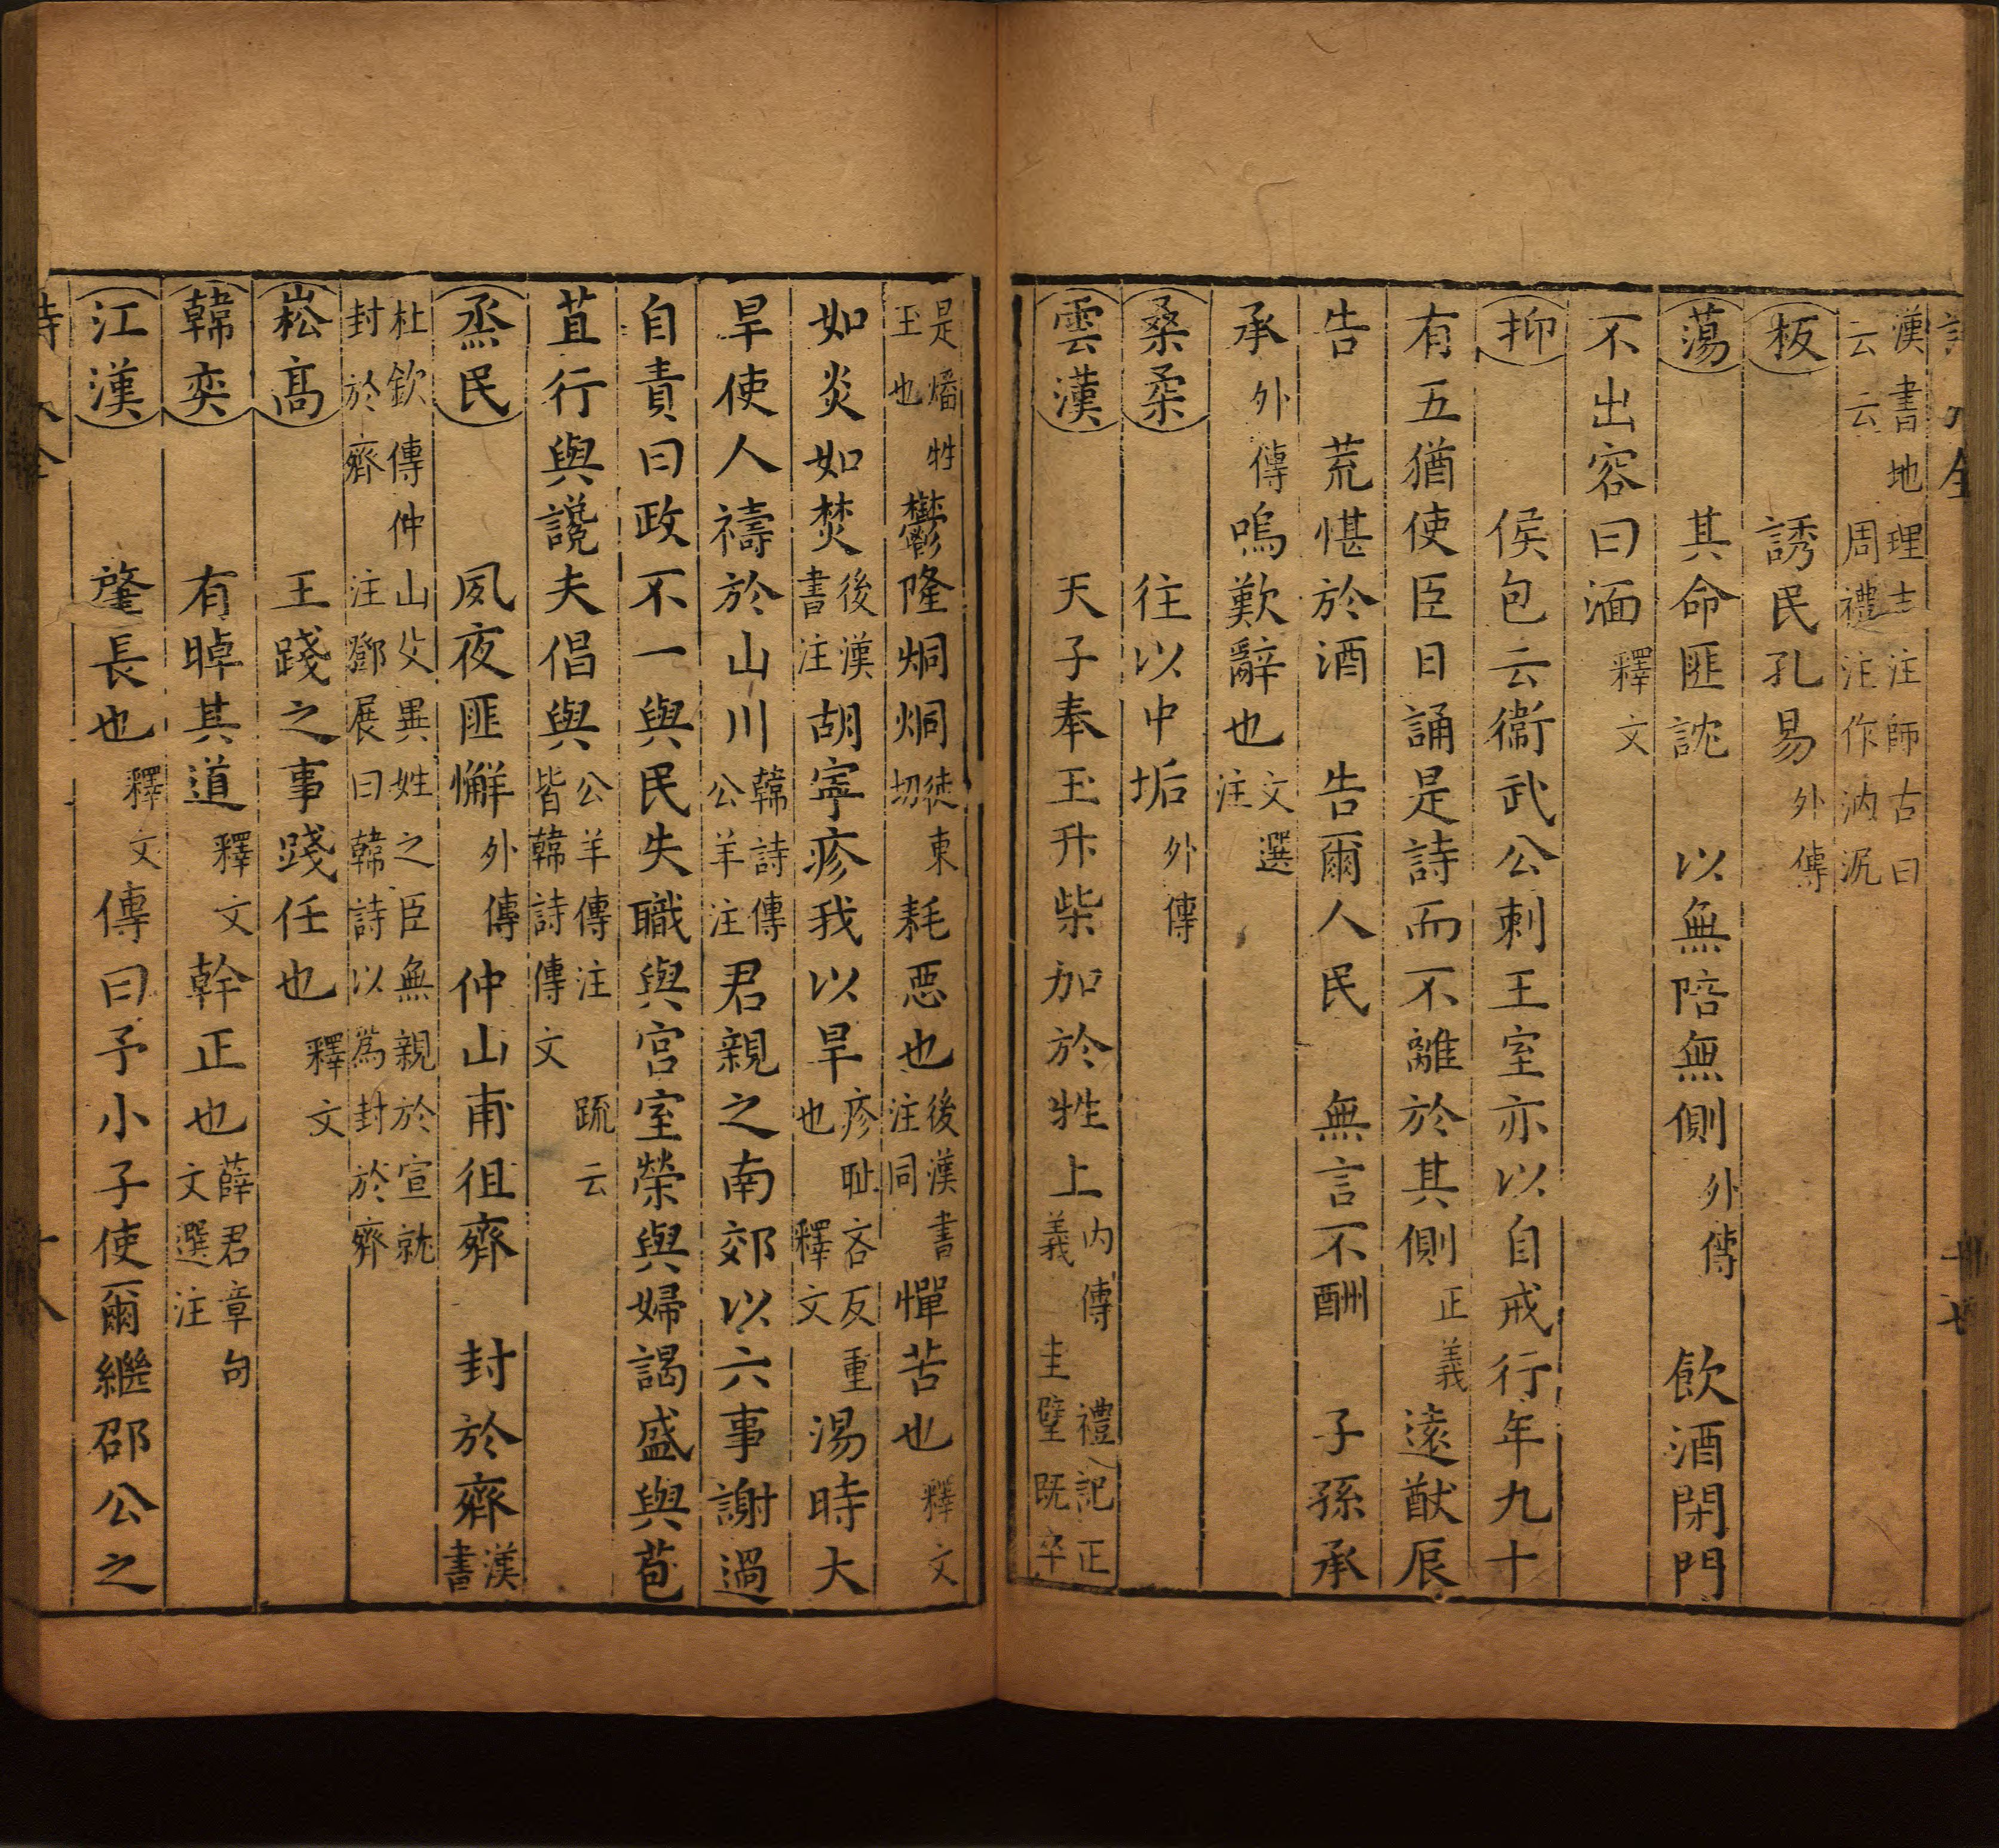 漢書地理志注師古曰
云云　周禮注作汭阢
板　誘民孔易外傳
蕩　其命匪訦　以無陪無側外傳　飲酒閉門
不出容曰湎釋文
抑　侯包云衞武公刺王室亦以自戒行年九十
有五猶使臣日誦是詩而不離於其側正義　遠猷辰
告　荒愖於酒　告爾人民　無言不酬　子孫承
承外傳嗚歎辭也文選注
桑柔　往以中垢外傳
雲漢　天子奉玉升柴加於牲上內傳　禮記正義　圭璧既卒
是燔牲玉也　鬱隆烔烔徒東切　耗惡也後漢書注同　憚苦也釋文
如炎如焚後漢書注　胡寧疹我以旱疹恥吝反　重也釋文　湯時大
旱使人禱於山川韓詩傳公羊注　君親之南郊以六事謝過
自責曰政不一與民失職與宮室榮與婦謁盛與苞
苴行與讒夫倡與公羊傳注　疏云皆韓詩傳文
烝民　夙夜匪懈外傳　仲山甫徂齊　封於齊漢書
杜欽傳仲山父異姓之臣無親於宣就
封於齊　注鄧展曰韓詩以爲封於齊
崧高　王踐之事踐任也釋文
韓奕　有晫其道釋文　幹正也薛君章句文選注
江漢　肇長也釋文　傳曰予小子使爾繼邵公之